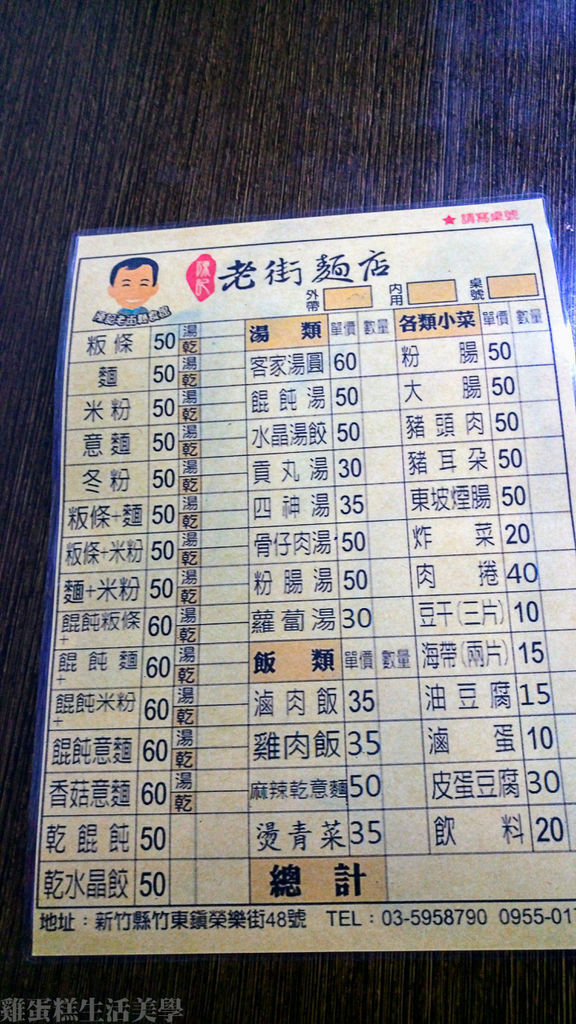 ★ 請寫桌號
陳記 老街麵店
外帶 內用 桌號
粄條 50 湯 乾
麵 50 湯 乾
米粉 50 湯 乾
意麵 50 湯 乾
冬粉 50 湯 乾
粄條+麵 50 湯 乾
粄條+米粉 50 湯 乾
麵+米粉 50 湯 乾
餛飩粄條 + 60 湯 乾
餛飩麵 + 60 湯 乾
餛飩米粉 + 60 湯 乾
餛飩意麵 60 湯 乾
香菇意麵 60 湯 乾
乾餛飩 50
乾水晶餃 50
湯類 單價 數量
客家湯圓 60
餛飩湯 50
水晶湯餃 50
貢丸湯 30
四神湯 35
骨仔肉湯 50
粉腸湯 50
蘿蔔湯 30
飯類 單價 數量
滷肉飯 35
雞肉飯 35
麻辣乾意麵 50
燙青菜 35
總計
各類小菜 單價 數量
粉腸 50
大腸 50
豬頭肉 50
豬耳朵 50
東坡煙腸 50
炸菜 20
肉捲 40
豆干(三片) 10
海帶(兩片) 15
油豆腐 15
滷蛋 10
皮蛋豆腐 30
飲料 20
地址：新竹縣竹東鎮榮樂街48號 TEL：03-5958790 0955-01
雞蛋糕生活美學